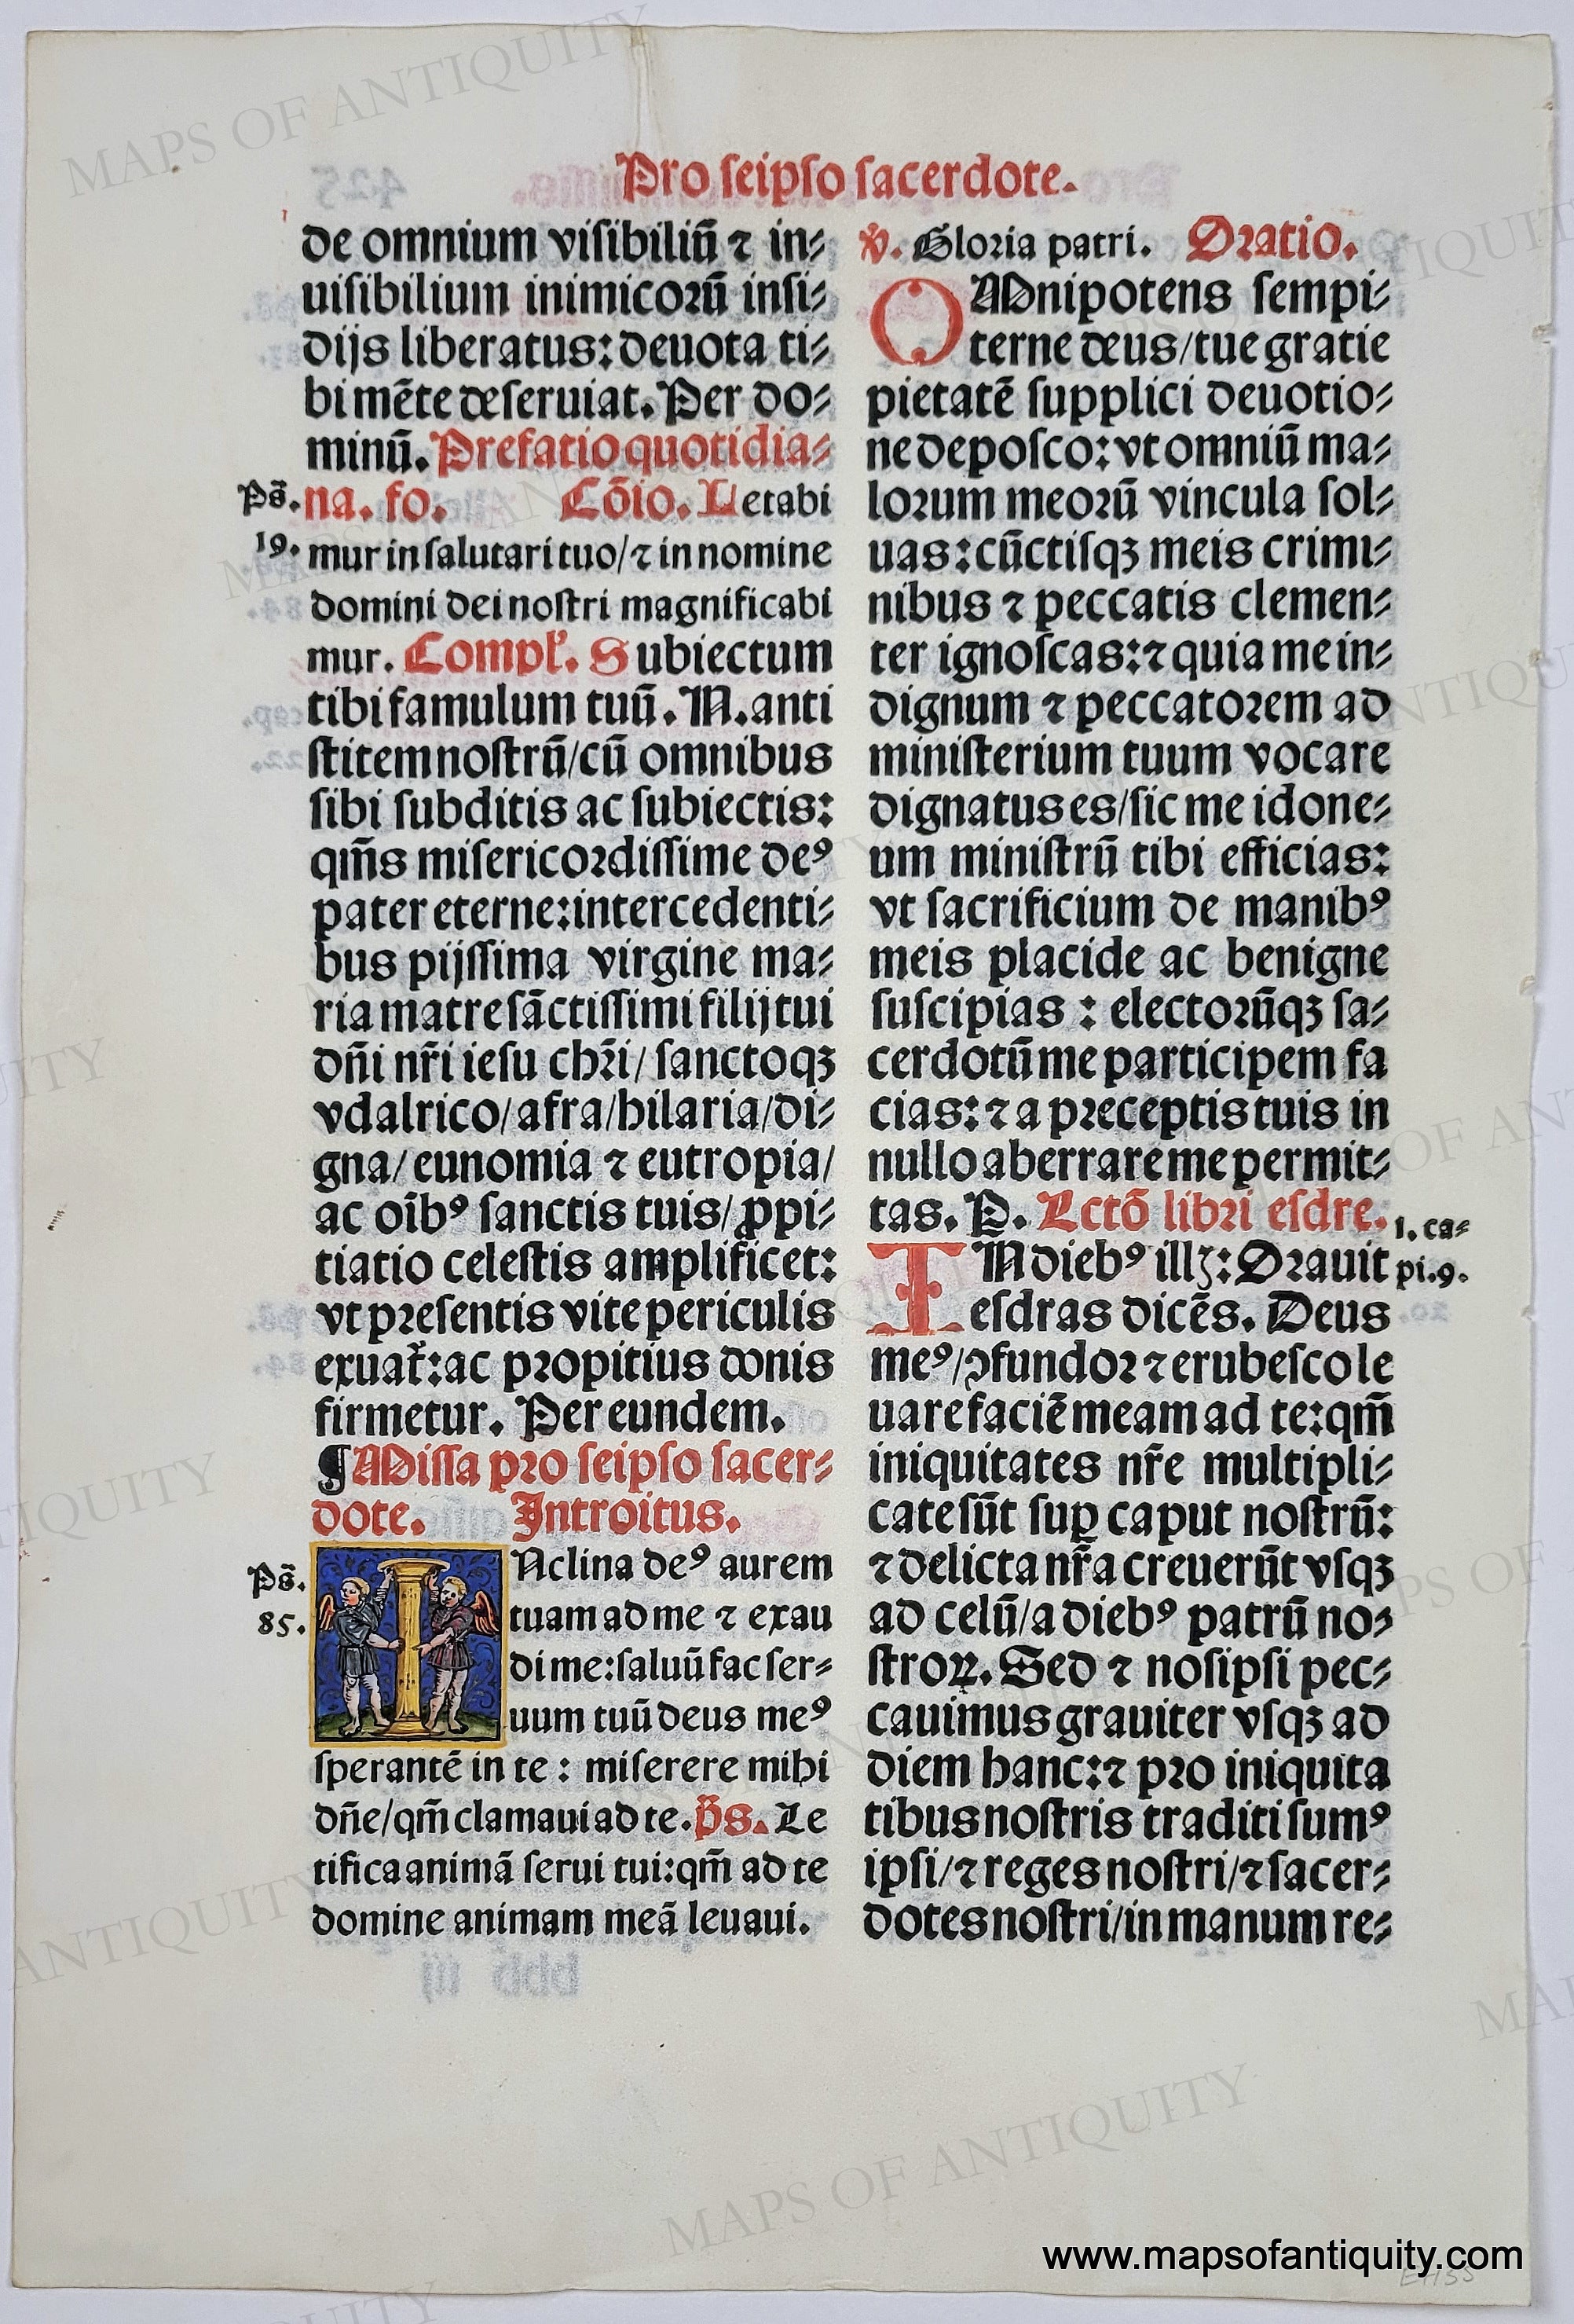 Pro seipso sacerdote.
de omnium visibiliū ⁊ in⸗
uisibilium inimicorū insi⸗
dijs liberatus: deuota ti⸗
bi mēte deseruiat. Per do⸗
minū. Prefatio quotidia⸗
Ps̄. na. fo. Cōio. Letabi
19. mur in salutari tuo/⁊ in nomine
domini dei nostri magnificabi
mur. Compl̛. Subiectum
tibi famulum tuū. N. anti
stitem nostrū/cū omnibus
sibi subditis ac subiectis:
qm̄s misericordissime deꝰ
pater eterne: intercedenti⸗
bus pijssima virgine ma⸗
ria matre sāctissimi filij tui
dn̄i nr̄i iesu chr̄i/ sanctoqꝫ
vdalrico/ afra/hilaria/di⸗
gna/ eunomia ⁊ eutropia/
ac oībꝰ sanctis tuis/ ꝓpi⸗
tiatio celestis amplificet:
vt presentis vite periculis
exuat᷑: ac propitius donis
firmetur. Per eundem.
¶ Missa pro seipso sacer⸗
dote. Introitus.
Ps̄. 85.
INclina deꝰ aurem
tuam ad me ⁊ exau
di me: saluū fac ser⸗
uum tuū deus meꝰ
sperantē in te: miserere mihi
dn̄e/qm̄ clamaui ad te. p̄s. Le
tifica animā serui tui: qm̄ ad te
domine animam meā leuaui.
℣. Gloria patri. Oratio.
OMnipotens sempi⸗
terne deus/tue gratie
pietatē supplici deuotio⸗
ne deposco: vt omniū ma⸗
lorum meorū vincula sol⸗
uas: cūctisqꝫ meis crimi⸗
nibus ⁊ peccatis clemen⸗
ter ignoscas: ⁊ quia me in⸗
dignum ⁊ peccatorem ad
ministerium tuum vocare
dignatus es/sic me idone⸗
um ministrū tibi efficias:
vt sacrificium de manibꝰ
meis placide ac benigne
suscipias : electorūqꝫ sa⸗
cerdotū me participem fa
cias: ⁊ a preceptis tuis in
nullo aberrare me permit⸗
tas. P. Lctō libri esdre.
1. ca⸗
pi. 9.
IN diebꝰ illꝫ: Orauit
esdras dicēs. Deus
meꝰ/ꝯfundor ⁊ erubesco le
uare faciē meam ad te: qm̄
iniquitates nr̄e multipli⸗
cate sūt suꝑ caput nostrū:
⁊ delicta nr̄a creuerūt vsqꝫ
ad celū/a diebꝰ patrū no⸗
stroꝝ. Sed ⁊ nosipsi pec⸗
cauimus grauiter vsqꝫ ad
diem hanc: ⁊ pro iniquita
tibus nostris traditi sumꝰ
ipsi/⁊ reges nostri/⁊ sacer⸗
dotes nostri/in manum re⸗
MAPS OF ANTIQUITY
www.mapsofantiquity.com